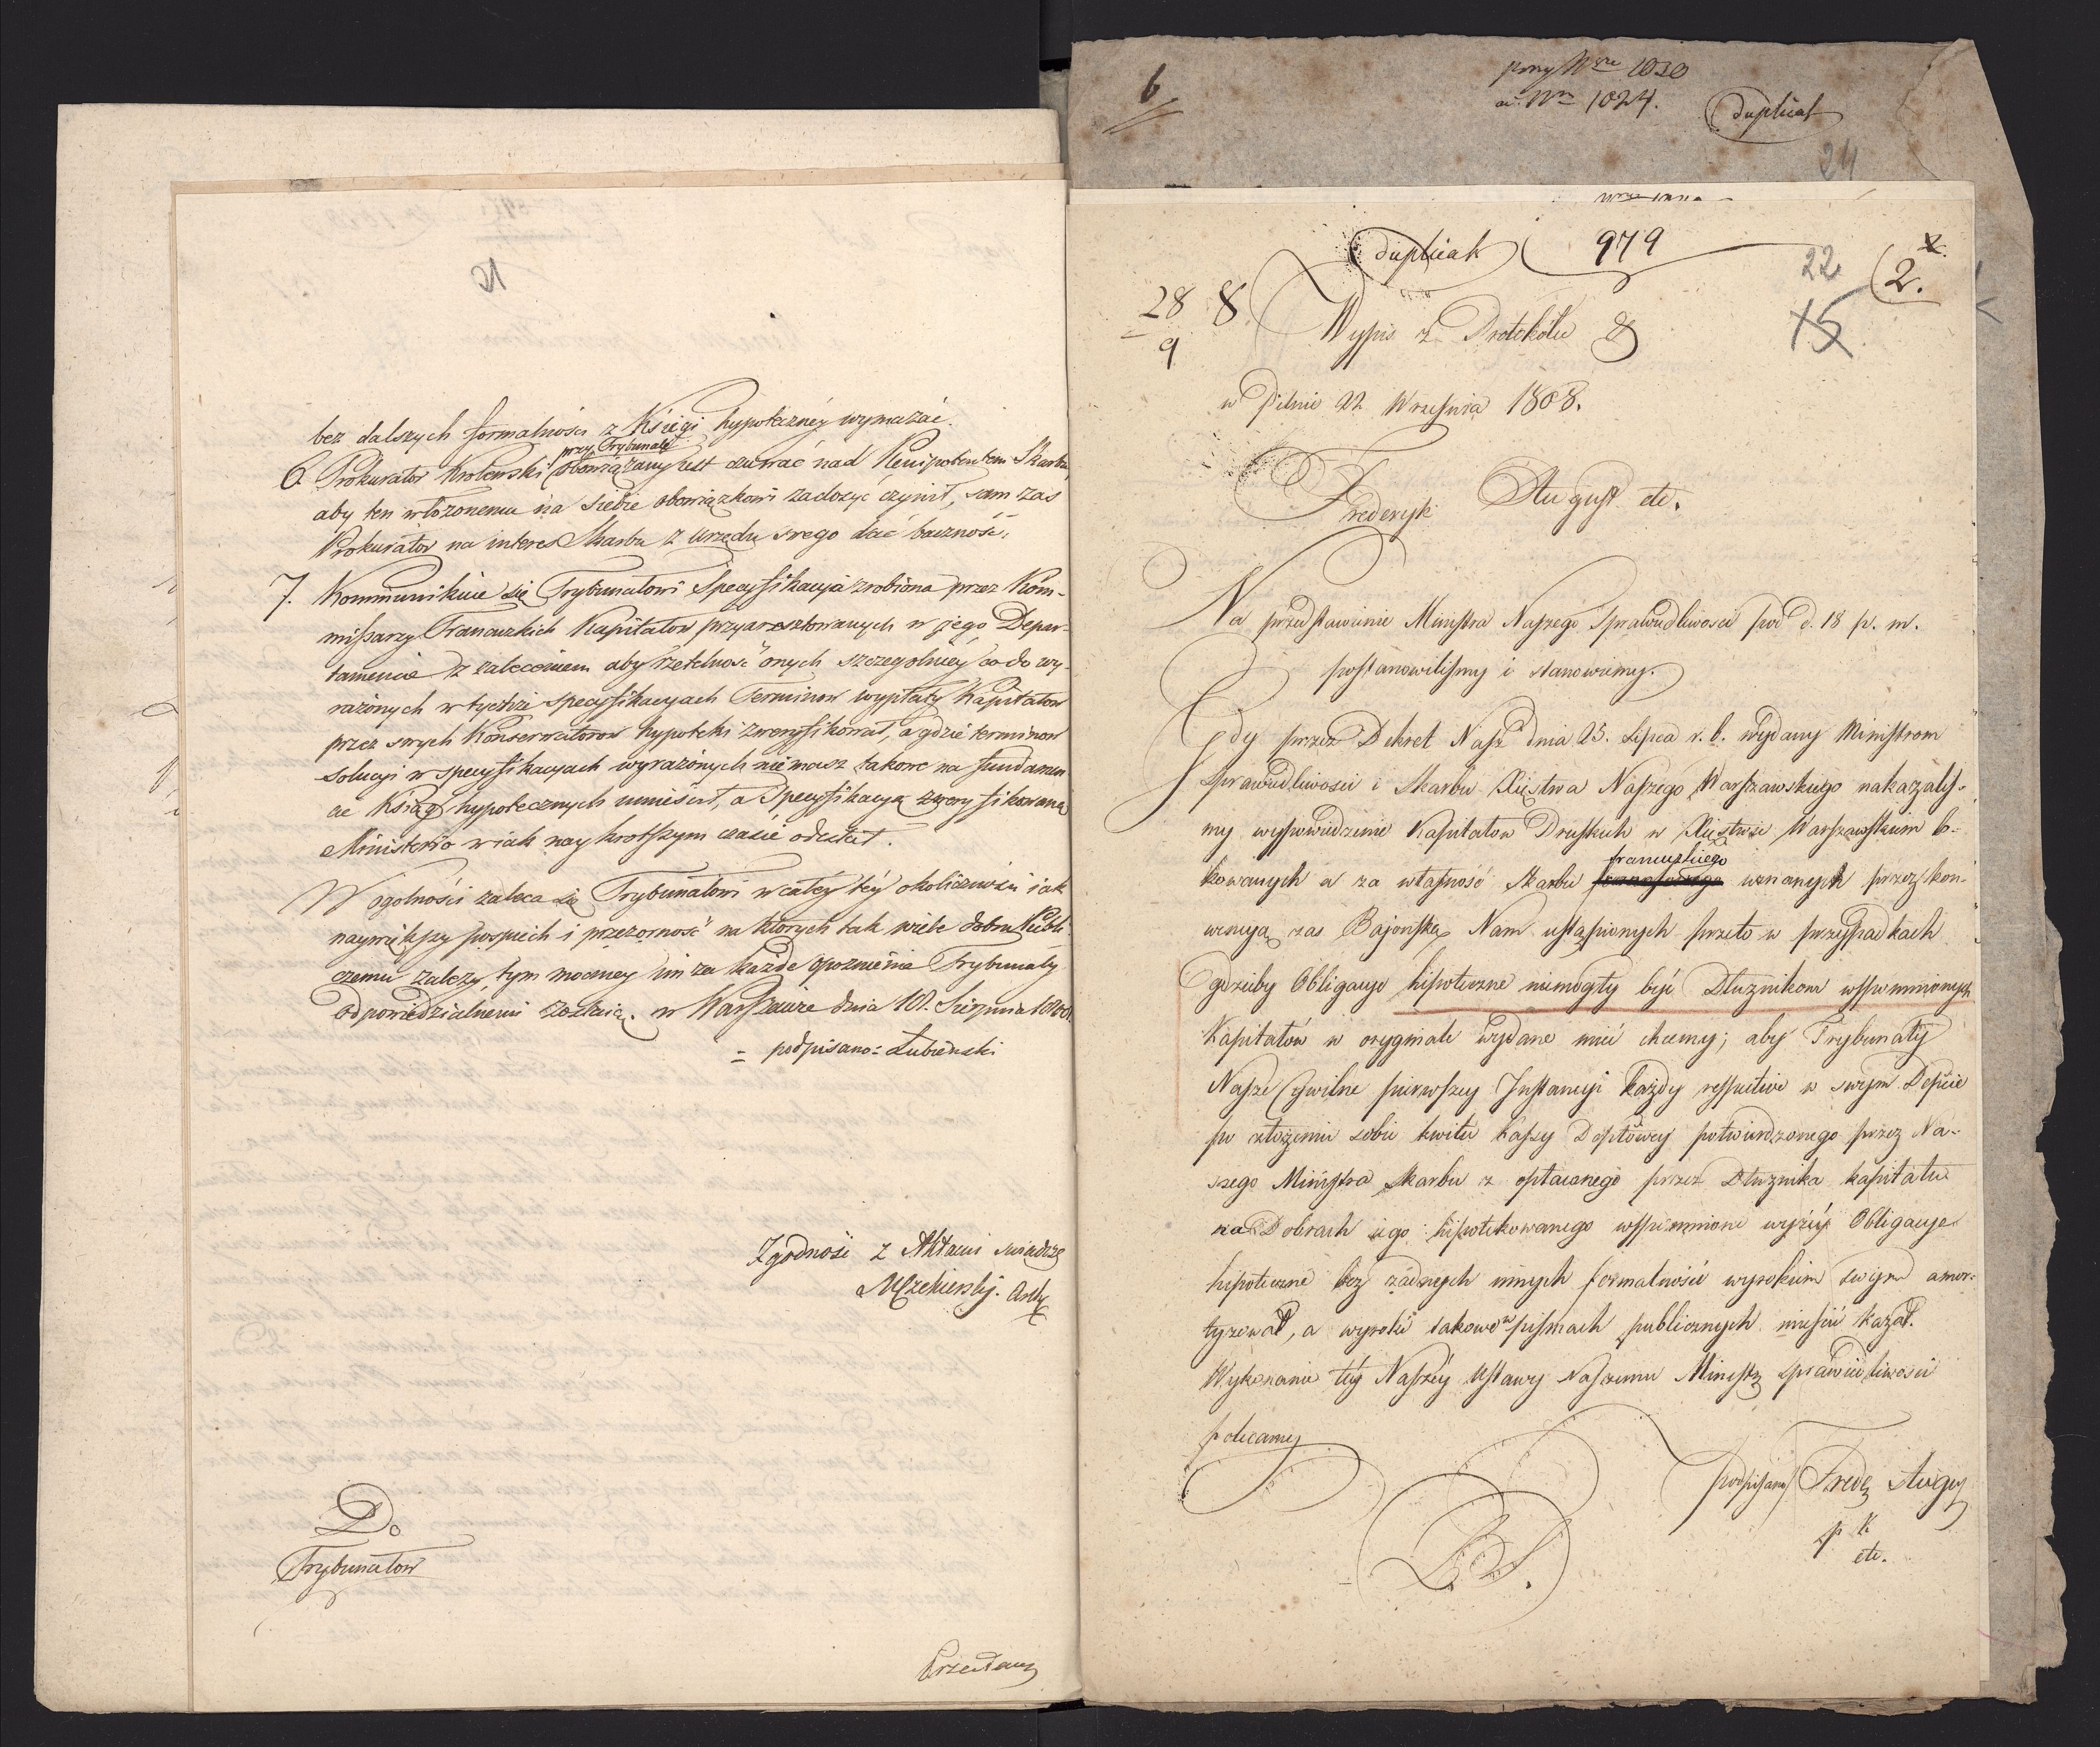 21
bez dalszych formalności z Księgi hypoteczney wymazać.
6. Prokurator Krolewski przy Trybunale obowiązany iest czuwać nad Plenipotentem Skarbu,
aby ten włożonemu na siebie obowiązkowi zadosyć czynił, sam zas
Prokurator na interes Skarbu z urzędu swego dać baczność.
7. Kommunikuie się Trybunałowi Specyfikacyia zrobiona przez Kom-
missarzy Francuzkich Kapitałow przyaresztowanych w jego Depar-
tamencie z zaleceniem aby rzetelność onych szczegolniey co do wy-
rażonych w tychże specyfikacyach Terminow wypłaty Kapitałow
przez swych Konserwatorow hypoteki zweryfikował, a gdzie terminow
solucyi w specyfikacyach wyrażonych nie masz takowe na fundamen
cie Ksiąg hypotecznych umieścił, a Specyfikacyą zweryfikowaną
Ministerio w iak naykrotszym czasie odesłał.
W ogolności zaleca się Trybunałowi w całey tey okoliczności iak
naywiększy pospiech i przezorność na ktorych tak wiele dobru Publi-
cznemu zależy, tym mocniey im za każde opoznienie Trybunały
odpowiedzialnemi zostaią. w Warszawie dnia 10. Sierpnia 1808.
= podpisano = Łubieński
Zgodność z Aktami swiadczę
Do
Trybunałow
6
przy Nrze 1030
ad Nm 1024.
duplicat
24
duplicat 979
22
2.
15
28 8
9
Wypis z Protokółu
w Pilnie 22 Wrzesnia 1808.
Frederyk August etc.
Na przedstawienie Ministra Naszego Sprawiedliwosci pod d. 18 p. m.
postanowilismy i stanowiemy.
Gdy przez Dekret Nasz dnia 25. Lipca r. b. wydany Ministrom
Sprawiedliwosci i Skarbu Xięstwa Naszego Warszawskiego nakazalis-
my wypowiedzenie Kapitałow Pruskich w Xięstwie Warszawskim lo-
kowanych a za własność Skarbu francuzkiego uznanych przez kon-
wencyą zas Bajonską Nam ustąpionych przeto w przypadkach
gdzieby Obligacye hipoteczne niemogły być Dłuznikom wspomnionych
Kapitałów w oryginale wydane mieć chcemy; aby Trybunały
Nasze Cywilne pierwszey Instancyi każdy respective w swym Depcie
po złożeniu sobie kwitu kassy Deptowey potwierdzonego przez Na-
szego Ministra Skarbu z opłaconego przez Dłużnika kapitału
na Dobrach iego hipotekowanego wspomnione wyżey Obligacye
hipoteczne bez żadnych innych formalności wyrokiem swym amor-
tyzował, a wyroki takowe w pismach publicznych mieścić kazał.
Wykonanie tey Naszéy Ustawy Naszemu Ministr. sprawiedliwosci
polecamy
podpisany Fredr. August
L. S.
etc.